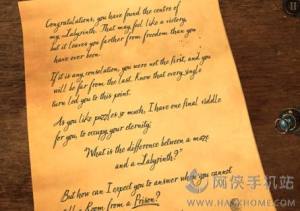 Congratulations, you have found the centre of
my Labyrinth. That may feel like a victory,
but it leaves you farther from freedom than you
have ever been.
If it is any consolation, you were not the first, and you
will be far from the last. Know that every single
turn led you to this point.
As you like puzzles so much, I have one final riddle
for you, to occupy your eternity:
"What is the difference between a maze
and a Labyrinth?"
But how can I expect you to answer when you cannot
a Room from a Prison?
网侠手机站
WWW.HACKHOME.COM